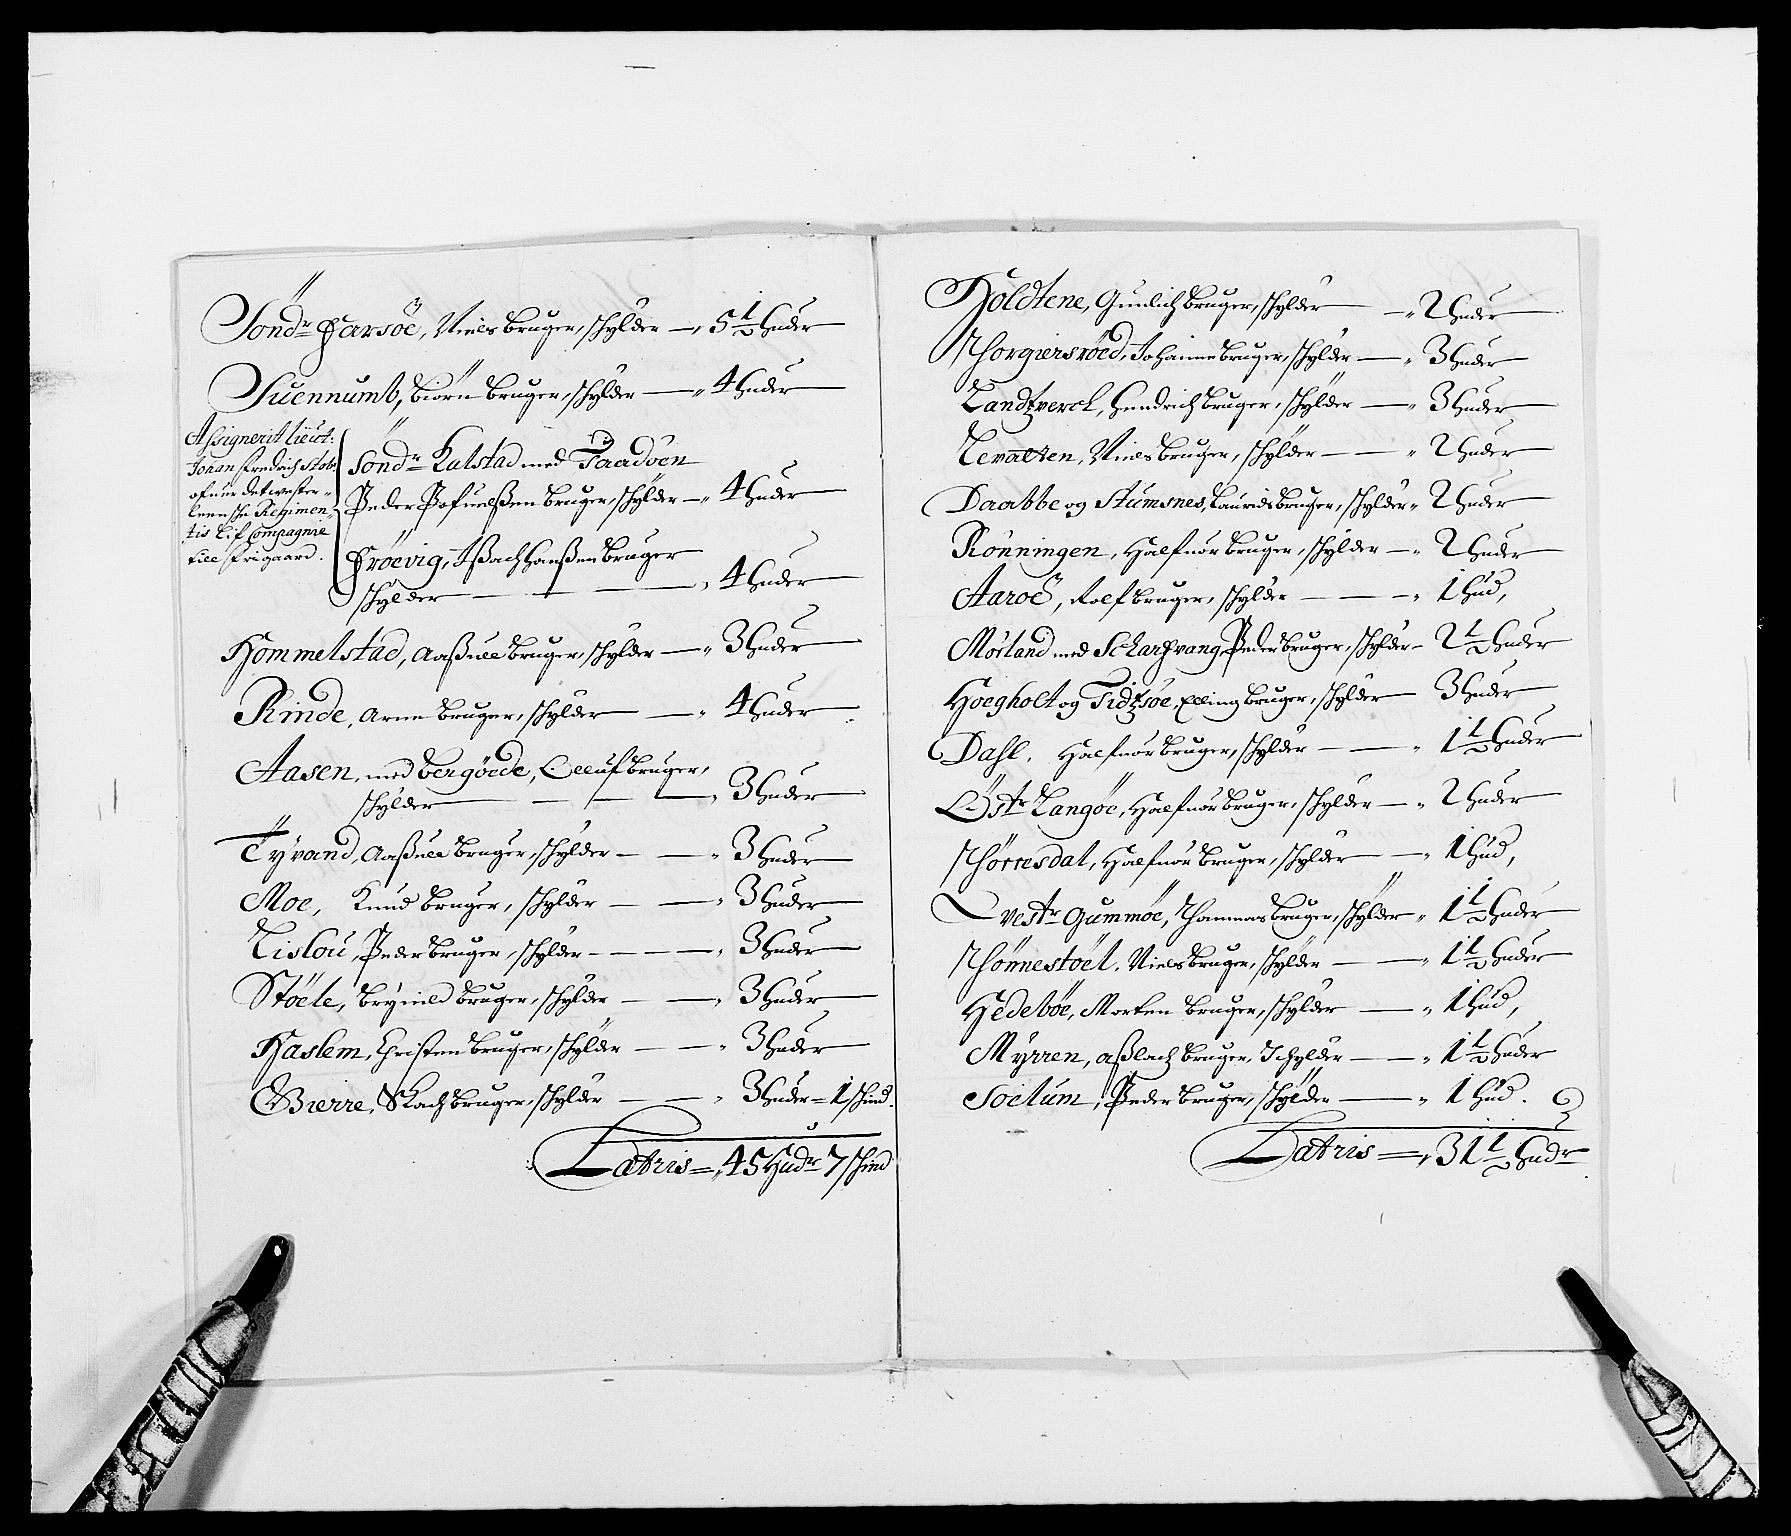 Sönd:r Farsöe, Niels bruger, schylder — 5 1/2 huder
Suennumb, biörn bruger, schylder — 4 huder
Assignerit lieut:
Johan Fredrich Stob,
ofuer det wester-
leenske Regimen-
tis lif Compagnie
till frigaard.
Sönd:r Kalstad med Taadöen
Peder Pofuelßen bruger, schylder — 4 huder
Fröevig, Ißach Hanßen bruger
schylder — 4 huder
Hommelstad, Aaßull bruger, schylder — 3 huder
Rinde, Arne bruger, schylder — 4 huder
Aasen, med bergöede, Olluf bruger,
schylder — 3 huder
Tyvand, Aaßull bruger, schylder — 3 huder
Moe, Knud bruger, schylder — 3 huder
Lislou, Peder bruger, schylder — 3 huder
Stöele, brynild bruger, schylder — 3 huder
Haslem, Christen bruger, schylder — 3 huder
Bierre, Slach bruger, schylder — 3 huder = 1 schind.
Latris = 45 Hud:r 7 schind
Holdtene, Gunlich bruger, schylder — 2 huder
Norgiersröed, Johanne bruger, schylder — 3 huder
Landtzverck, Hendrich bruger, schylder — 3 huder
Levalten, Niels bruger, schylder — 2 huder
Daabbe og Stumsnes, Laurids bruger, schylder 2 huder
Rönningen, Halfuor bruger, schylder — 2 huder
Aaroe, Rolf bruger, schylder — 1 hud,
Mörland med Scharfvang, Peder bruger, schylder — 2 1/2 huder
Hoegholt og Tidtzöe, Elling bruger, schylder 3 huder
Dahl, Halfuor bruger, schylder — 1 1/2 huder
Öst:r Langöe, Halfuor bruger, schylder — 2 huder
Nörresdal, Halfuor bruger, schylder — 1 hud,
Vest:r Gummöe, Thommas bruger, schylder 1 1/2 huder
Nönnestöel, Niels bruger, schylder — 1 1/2 huder
Hedeböe, Morten bruger, schylder — 1 hud,
Myrren, Aßlach bruger, Schylder — 1 1/2 huder
Soelum, Peder bruger, schylder — 1 hud.
Latris = 31 1/2 hud:r